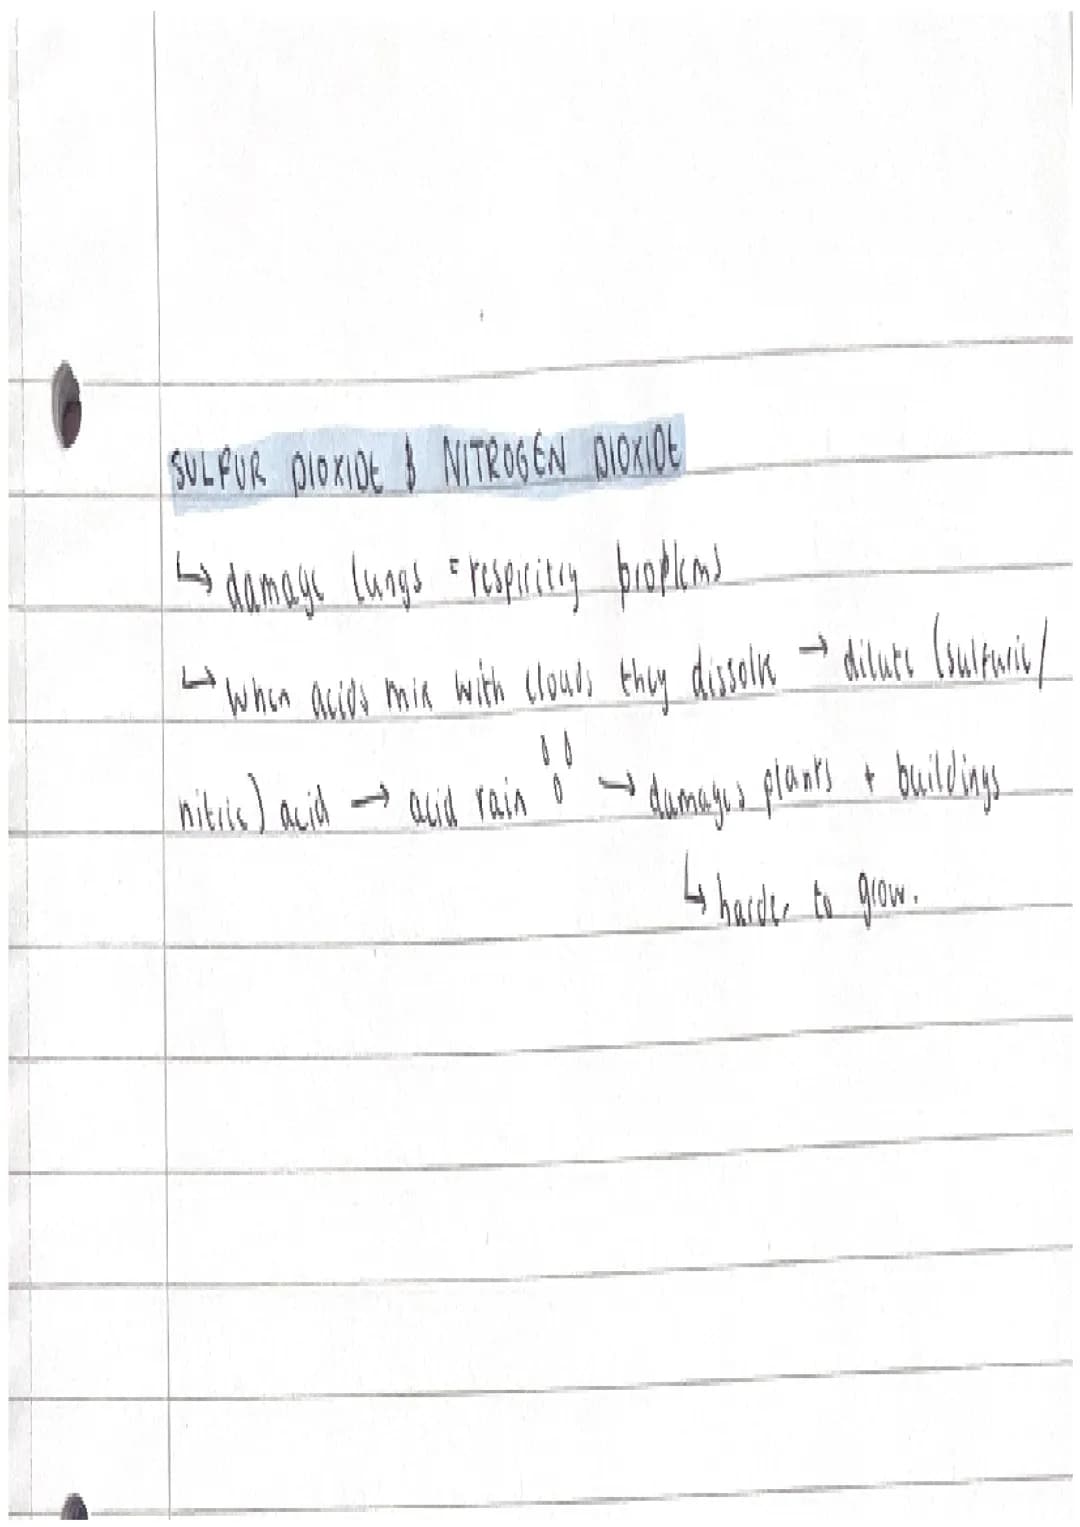 SULFUR DIOXIDE & NITROGEN DIOXIDE
↳ damage lungs = respiritry problems
↳ when acids mix with clouds they dissolve → dilute (sulfuric/
nitric) acid → acid rain → damages plants + buildings
↳ harder to grow.